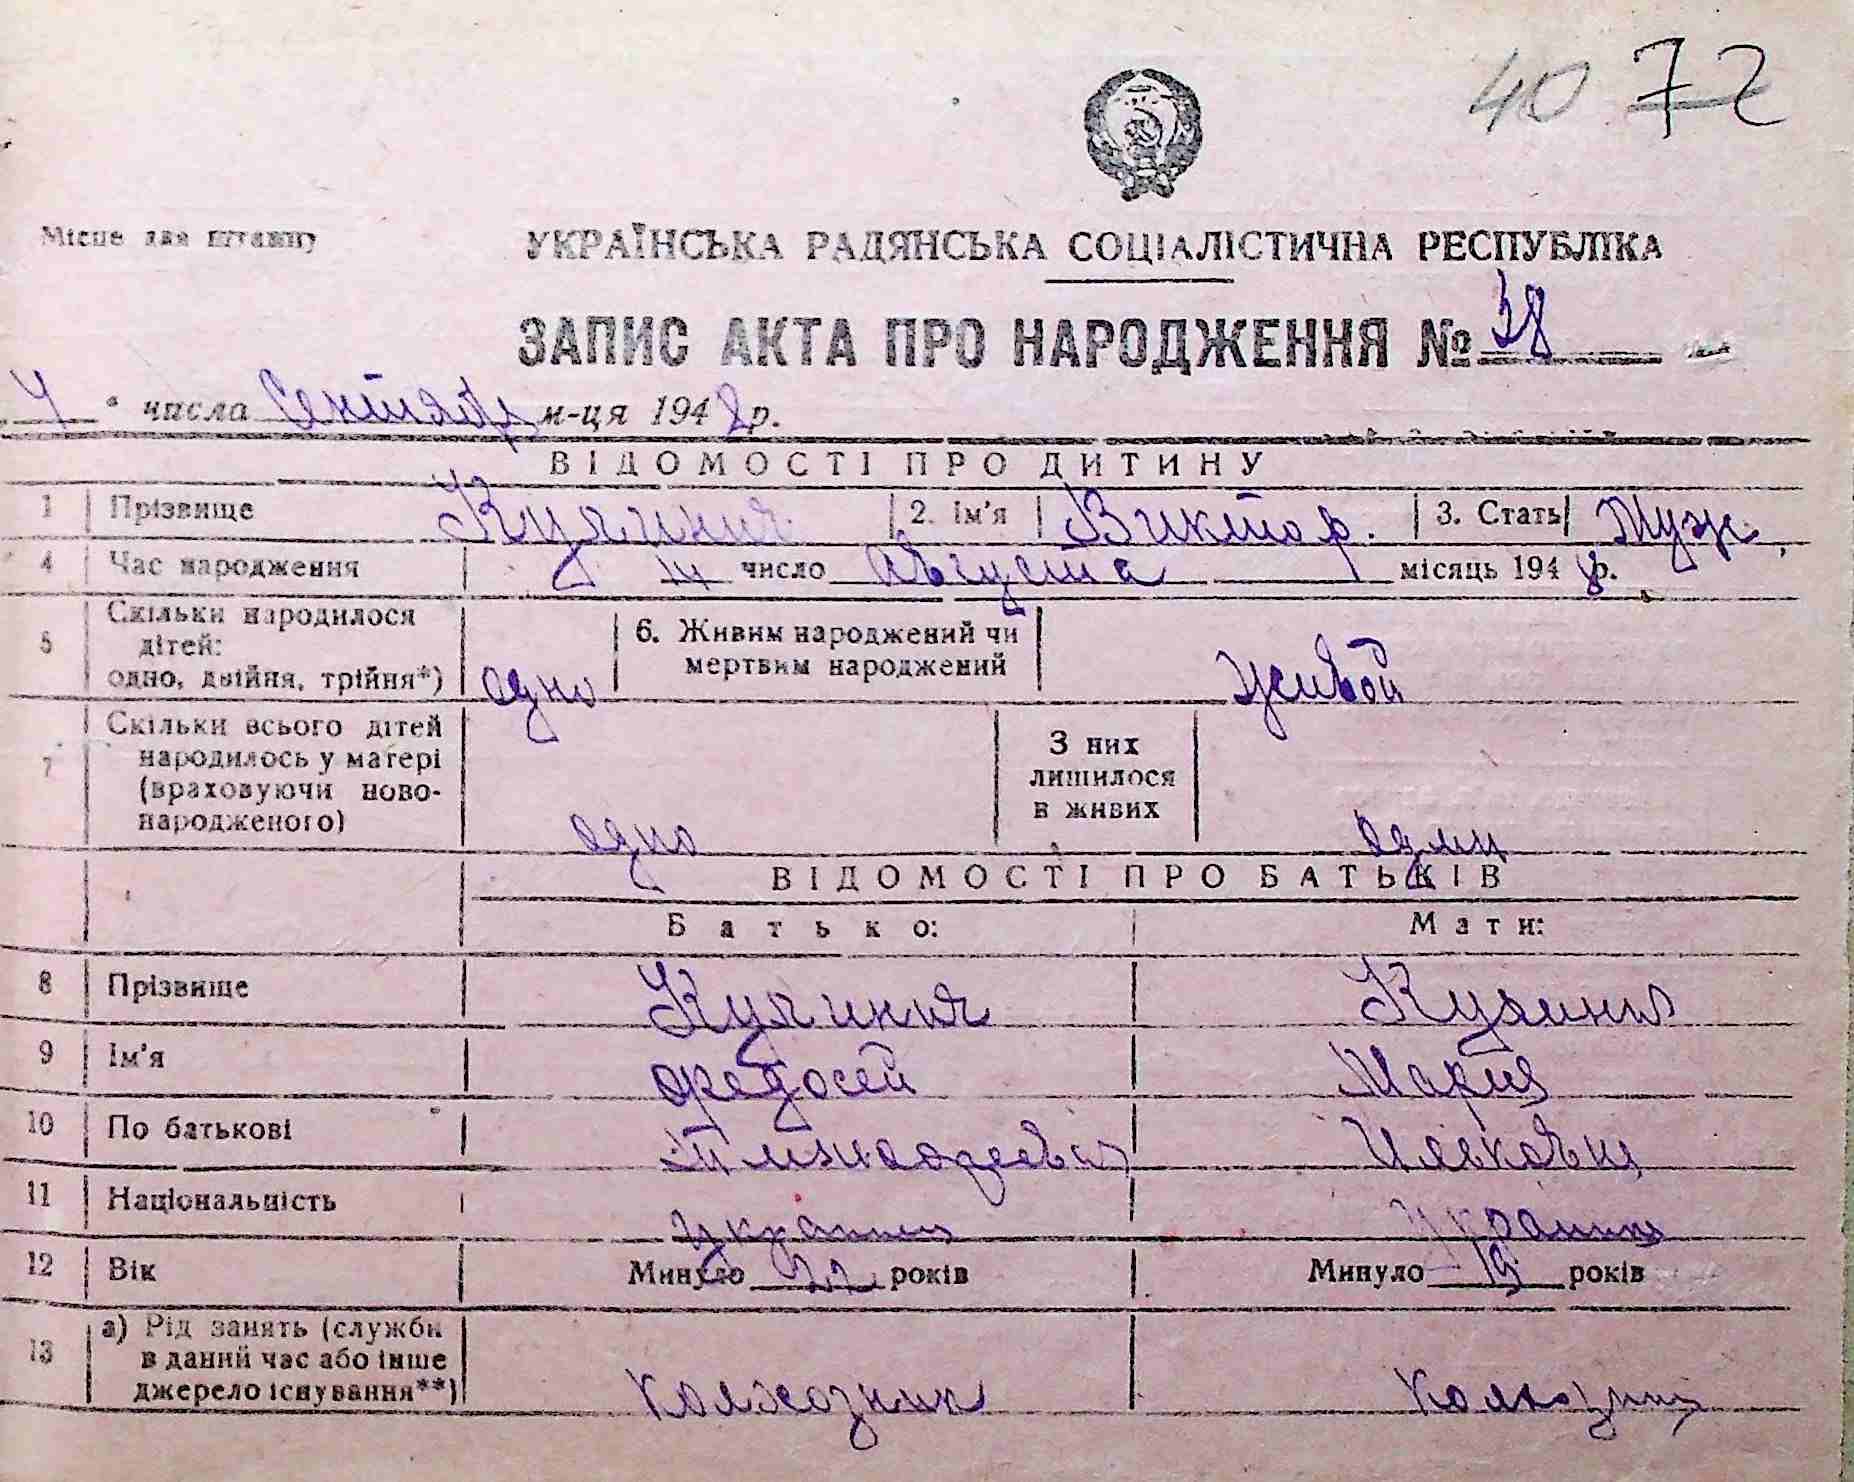 40 72
Місце для штампу
УКРАЇНСЬКА РАДЯНСЬКА СОЦІАЛІСТИЧНА РЕСПУБЛІКА
ЗАПИС АКТА ПРО НАРОДЖЕННЯ № 38
числа Сентября м-ця 1948 р.
ВІДОМОСТІ ПРО ДИТИНУ
1 Прізвище 2. Ім'я Виктор. 3. Стать Муж.
4 Час народження 14 число августа місяць 1948 р.
5 Скільки народилося дітей: одно, двійня, трійня*) одно 6. Живим народжений чи мертвим народжений живой
7 Скільки всього дітей народилось у матері (враховуючи ново-народженого) одно З них лишилося в живих один
ВІДОМОСТІ ПРО БАТЬКІВ
Батько: Мати:
8 Прізвище
9 Ім'я Федосей Мария
10 По батькові
11 Національність украинец
12 Вік Минуло 22 років Минуло 19 років
13 а) Рід занять (служби в даний час або інше джерело існування**) Колхозник